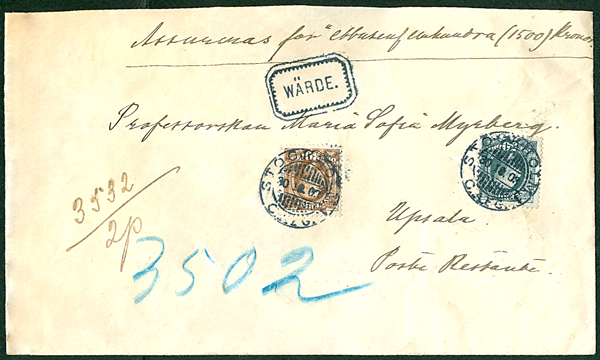 Assureras för Ettusenfemhundra (1500) Kronor.
WÄRDE.
Professorskan Maria Sofia Myrberg.
STOCKHOLM
30 8 04
STOCKHOLM
30 8 04
3532
2p
Upsala.
Poste Restante.
3502